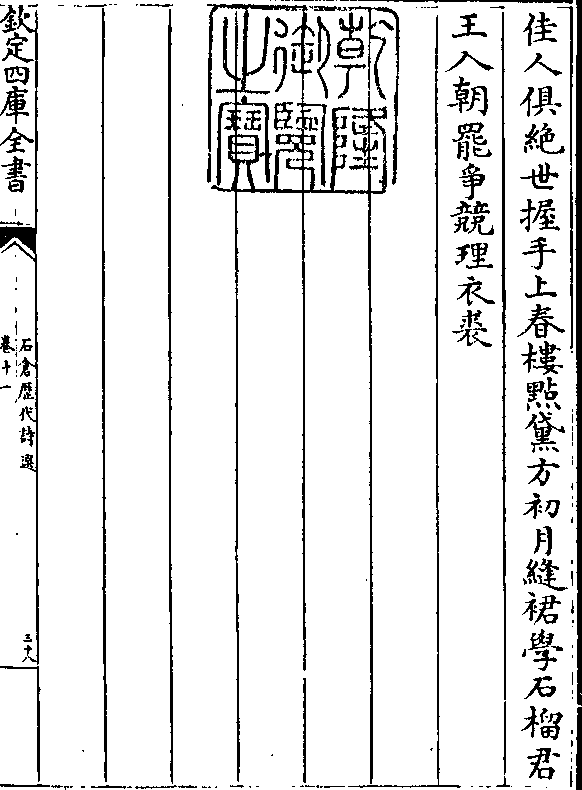 佳人俱絶世握手上春樓點黛方初月縫裙學石榴君
王入朝罷爭競理衣裘
乾隆
御覽
之寶
欽定四庫全書
石倉歴代詩選
卷十一
三十八